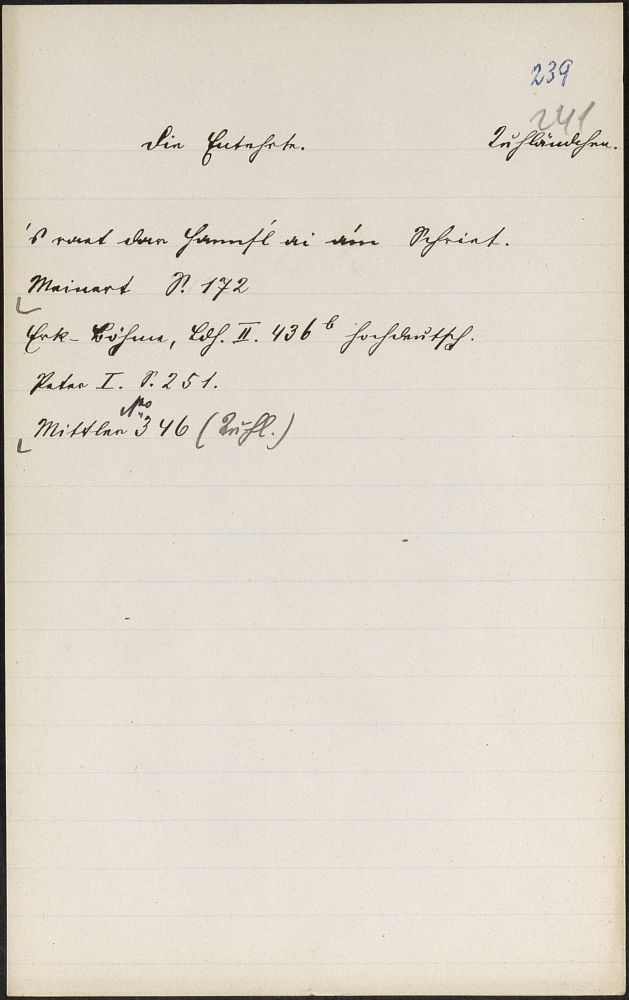 239
241
Die Entehrte. Kuhländchen.
's raet dar Hannsl ai äm Schriet.
Meinert S. 172
Erk-Böhme, Ldh. II. 436 b hochdeutsch.
Peter I. S. 251.
Mittler No 346 (Kuhl.)